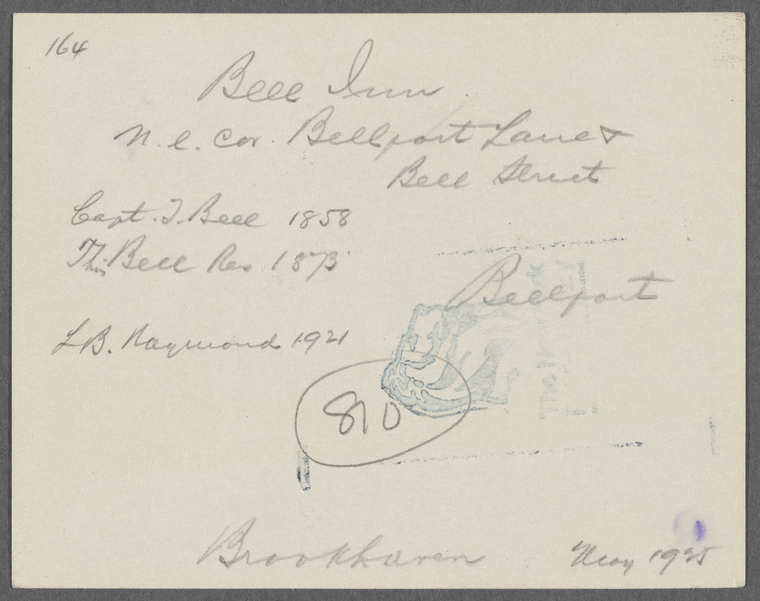 164
Bell Inn.
N. E. Cor. Bellport Lane &
Bell Street
Capt. T. Bell 1858
Thos Bell Res. 1873
Bellport
L B. Raymond 1921
810
Brookhaven
May 1925